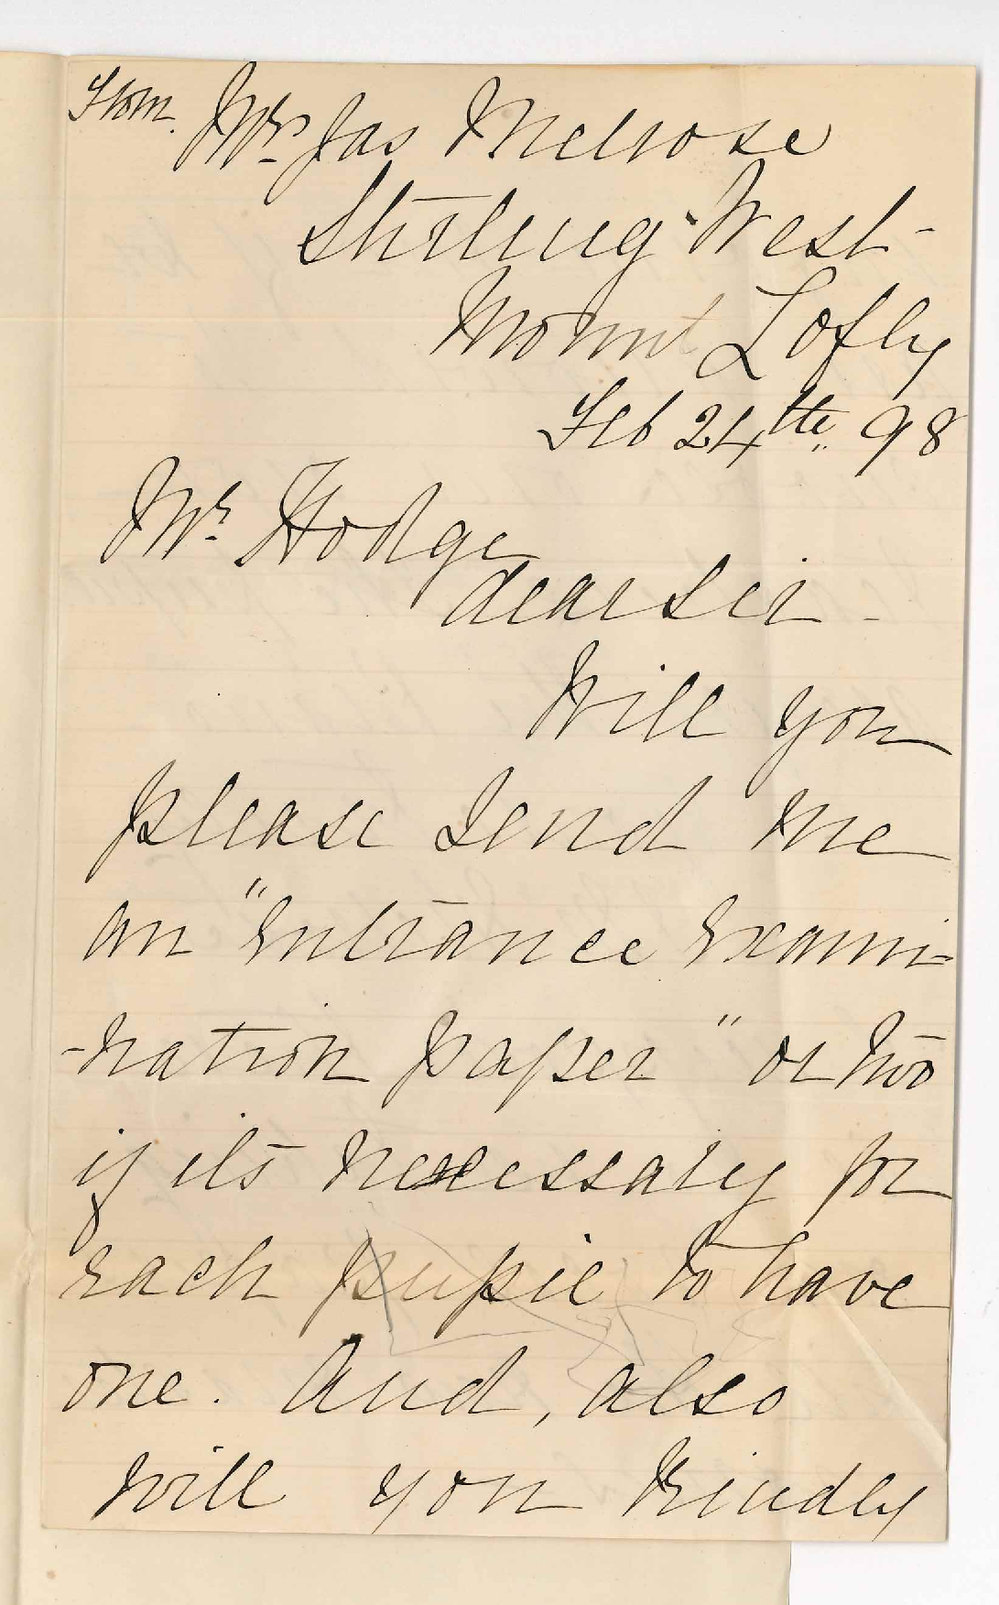 From. Mrs. Jas Melrose
Stirling West -
Mount Lofty
Feb 24th.. 98
Mr. Hodge
dear Sir -
Will you
please Send me
an "Entrance Exami-
-nation paper" or two
if its necessary for
each pupil to have
one. And, also
will you kindly